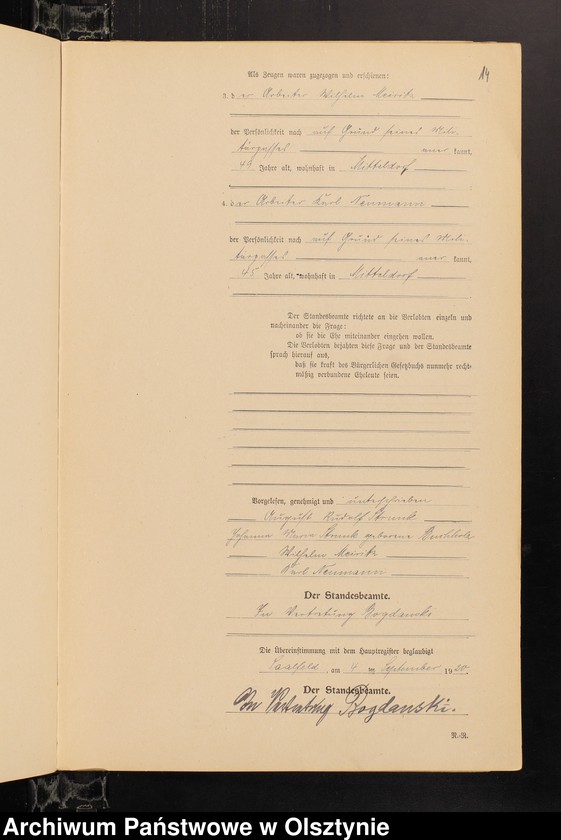 14
Als Zeugen waren zugezogen und erschienen:
3. der Arbeiter Wilhelm Meiritz
der Persönlichkeit nach auf Grund seines Mili-
tärpasses aner kannt,
49 Jahre alt, wohnhaft in Motteldorf
4. der Arbeiter Karl Neumann
der Persönlichkeit nach auf Grund seines Mili-
tärpasses aner kannt,
45 Jahre alt, wohnhaft in Motteldorf
Der Standesbeamte richtete an die Verlobten einzeln und
nacheinander die Frage:
ob sie die Ehe miteinander eingehen wollen.
Die Verlobten bejahten diese Frage und der Standesbeamte
sprach hierauf aus,
daß sie kraft des Bürgerlichen Gesetzbuchs nunmehr recht-
mäßig verbundene Eheleute seien.
Vorgelesen, genehmigt und unterschrieben
August Rudolf Strunk
Johanna Maria Strunk geborene Buchholz
Wilhelm Meiritz
Karl Neumann
Der Standesbeamte.
In Vertretung Bogdanski
Die Übereinstimmung mit dem Hauptregister beglaubigt
Saalfeld, am 4 ten September 1920.
Der Standesbeamte.
In Vertretung Bogdanski.
N.-R.
Archiwum Państwowe w Olsztynie